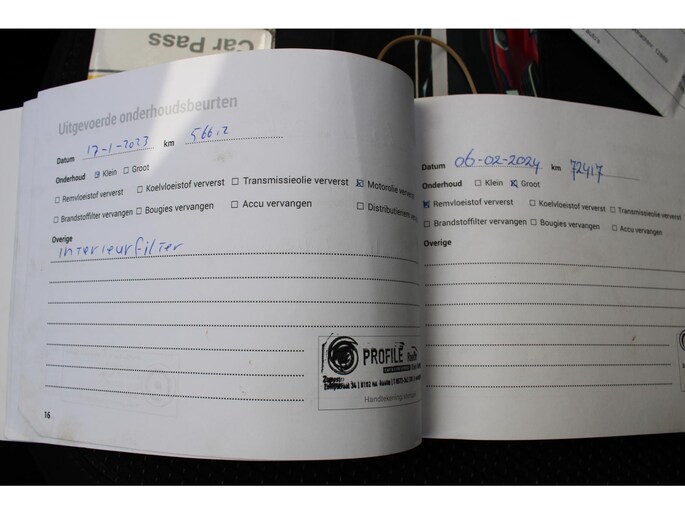 Car Pass
Uitgevoerde onderhoudsbeurten
Datum 17-1-2023 km 566.2
Onderhoud ☒ Klein ☐ Groot
☐ Remvloeistof ververst ☐ Koelvloeistof ververst ☐ Transmissieolie ververst ☒ Motorolie ververst
☐ Brandstoffilter vervangen ☐ Bougies vervangen ☐ Accu vervangen ☐ Distributieriem
Overige
interieurfilter
PROFILE
Handtekening
16
Datum 06-02-2024 km 72417
Onderhoud ☐ Klein ☒ Groot
☒ Remvloeistof ververst ☐ Koelvloeistof ververst ☐ Transmissieolie ververst
☐ Brandstoffilter vervangen ☐ Bougies vervangen ☐ Accu vervangen
Overige